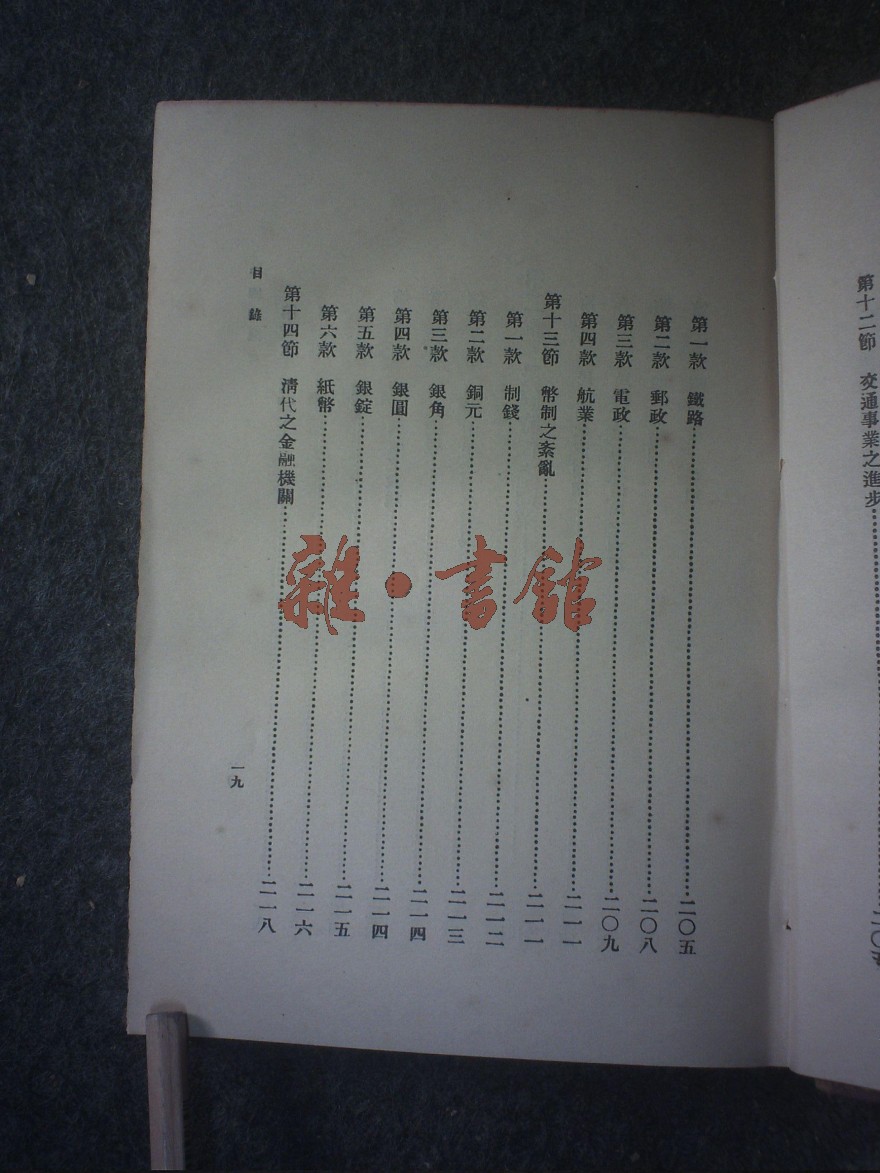 第十二節 交通事業之進步……二〇五
第一款 鐵路……二〇五
第二款 郵政……二〇八
第三款 電政……二〇九
第四款 航業……二一一
第十三節 幣制之紊亂……二一一
第一款 制錢……二一二
第二款 銅元……二一三
第三款 銀角……二一四
第四款 銀圓……二一四
第五款 銀錠……二一五
第六款 紙幣……二一六
第十四節 清代之金融機關……二一八
目錄
一九
雜·書館